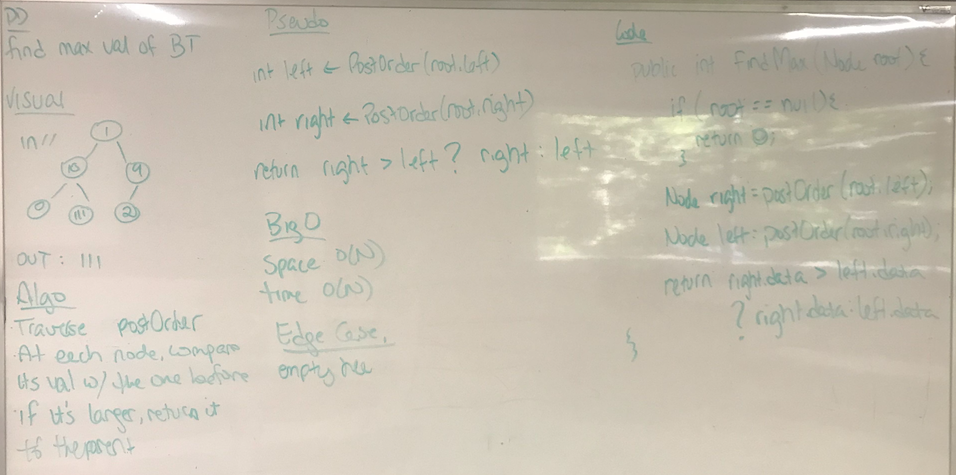 PD
find max val of BT
Visual
in //
1
10 9
9 111 2
OUT : 111
Algo
Traverse postOrder
At each node, compare
its val w/ the one before
if it's larger, return it
to the parent
Pseudo
int left ← PostOrder(root.left)
int right ← PostOrder(root.right)
return right > left ? right : left
Big O
Space O(N)
time O(N)
Edge Case,
empty tree
Code
public int FindMax(Node root) {
if (root == null) {
return 0;
}
Node right = postOrder (root.left);
Node left = postOrder(root.right);
return right.data > left.data
? right.data : left.data
}